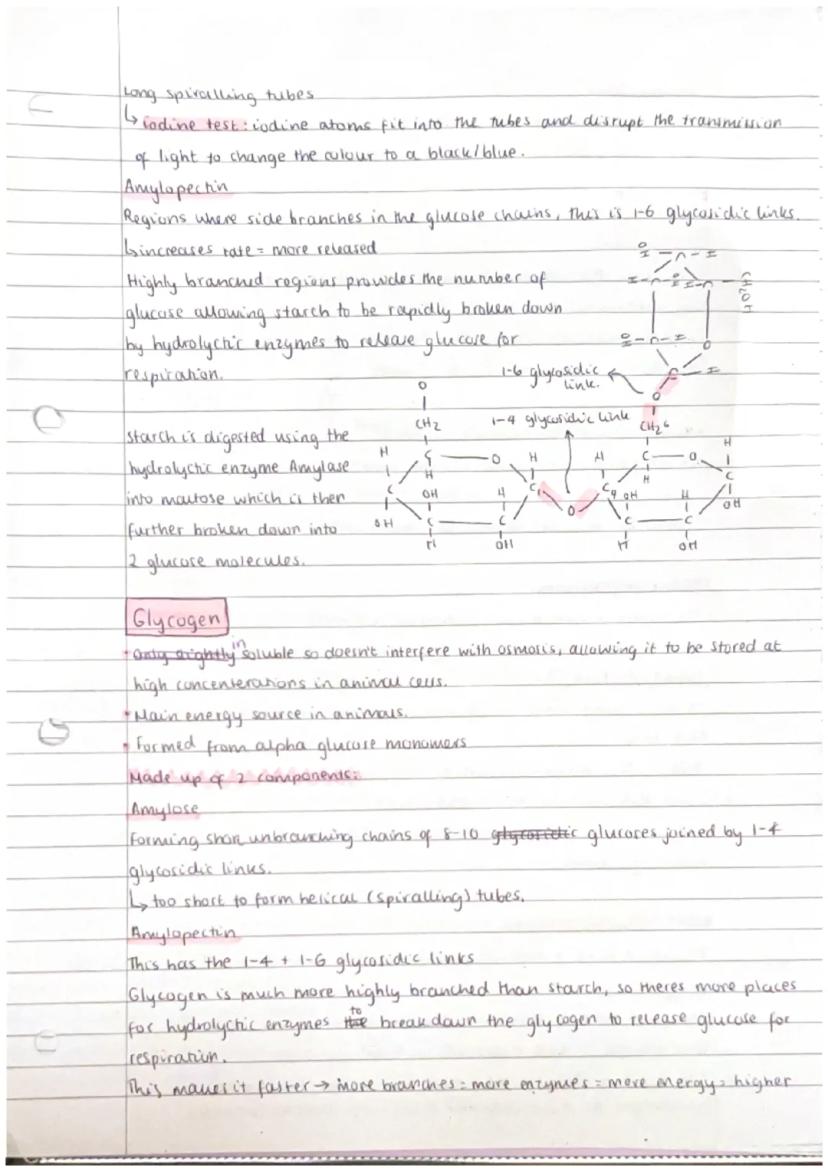 Long spiralling tubes
↳ iodine test: iodine atoms fit into the tubes and disrupt the transmission
of light to change the colour to a black/blue.
Amylopectin
Regions where side branches in the glucose chains, this is 1-6 glycosidic links.
↳ increases rate = more released
Highly branched regions provides the number of
glucose allowing starch to be rapidly broken down
by hydrolychic enzymes to release glucose for
respiration.
1-6 glycosidic
link.
1-4 glycosidic link
Starch is digested using the
hydrolychic enzyme Amylase
into maltose which is then
further broken down into
2 glucose molecules.
O
CH2
H
C
O
H
C
H
C1
OH
H
OH
C
C
H
OH
O
H
C4
OH
CH26
C
O
H
H
C
OH
H
C
C
H
OH
CH2OH
Glycogen
• only slightly insoluble so doesn't interfere with osmosis, allowing it to be stored at
high concenterations in animal cells.
• Main energy source in animals.
• Formed from alpha glucose monomers
Made up of 2 components:
Amylose
Forming short unbranching chains of 8-10 glycosidic glucoses joined by 1-4
glycosidic links.
↳ too short to form helical (spiralling) tubes.
Amylopectin
This has the 1-4 + 1-6 glycosidic links
Glycogen is much more highly branched than starch, so theres more places
for hydrolychic enzymes the to break down the glycogen to release glucose for
respiration.
This makes it faster → more branches = more enzymes = more energy = higher